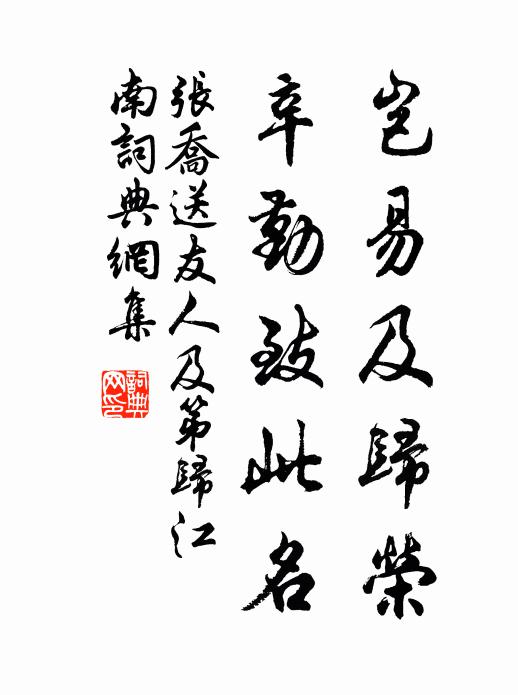 豈易及歸榮
辛勤致此名
張喬送友人及第歸江
南詞典網集
詞典网印